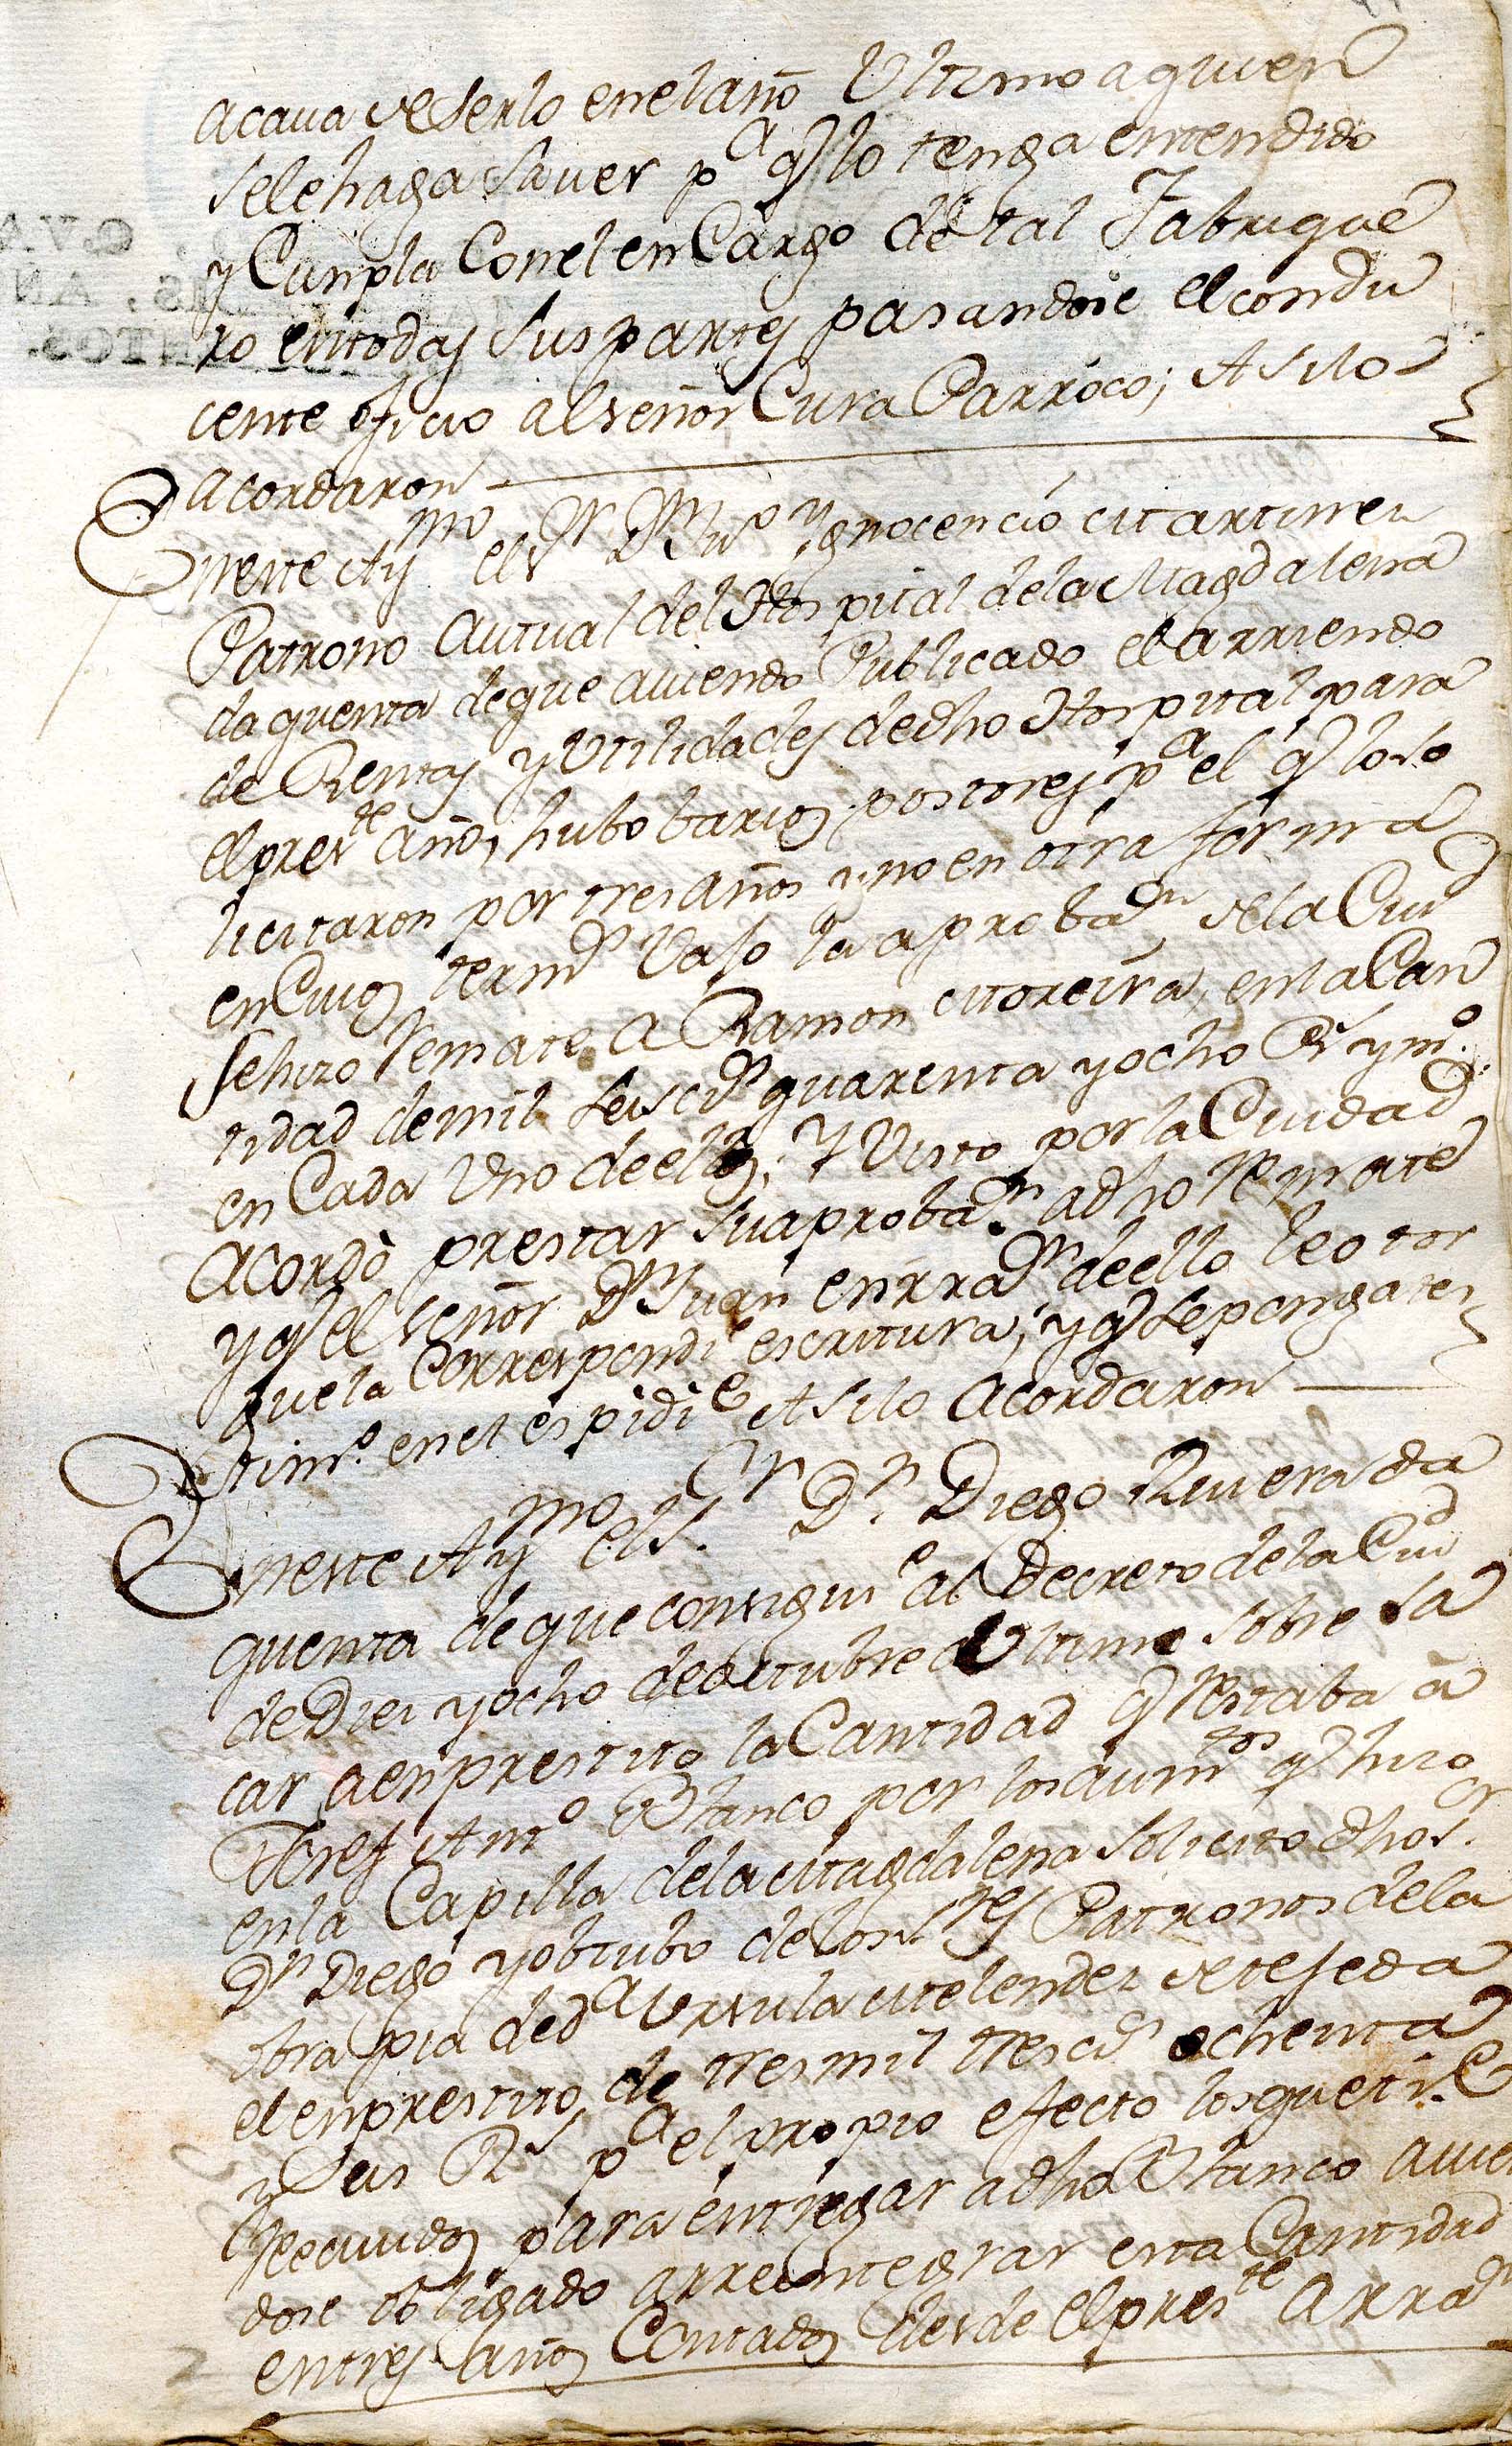 acava de serlo en el año Ultimo a quien
se le haga saver pª q lo tenga entendido
y Cunpla Con el enCargo de tal Fabrique
ro en todas sus partes pasandose el condu
cente oficio al señor Cura Parroco; Asi lo
acordaron
En este Aymº el Sr Dn Juº Ygnocencio Martinez
Patrono Autual del Hospital de la Magdalena
da quenta de que aviendo Publicado el arriendo
de Rentas y Utilidades de dho Hospital para
el preste año, hubo barios postores pª el q lo so
licitaron por tres años y no en otra forma
en Cuios termos Vajo la aprobaon de la Ciud
se hizo Remate a Ramon Moreira en la Can
tidad de mil seiscos quarenta y ocho Rs y mº
en Cada Uno de ellos; Y Visto por la Ciudad
Acordò prestar su aprobaon a dho Remate
y q el señor Dn Juan en rraon de ello le otor
gue la Correspondie escritura; y q se ponga tes
timº en el espidie Asi lo acordaron
En este Aymº el Sr Dn Diego Rivera da
quenta de que consiguie al Decreto de la Ciud
de Diez y ocho de octubre Ultimo sobre sa
car a enprestito la Cantidad q restaba â
Josef Antº Blanco por los aumtos q hizo
en la Capilla de la Magdalena solicito dho Sor
Dn Diego y obtubo de los Sres Patronos de la
obra pia de Dª Ursula Melendez de tejeda
el enprestito de tres mil trescos ochenta
y seis Rs pª el propio efecto los que tie
Recividos para entregar a dho Blanco avien
dose obligado a rreintegrar esta Cantidad
en tres años Contados desde el preste arraon